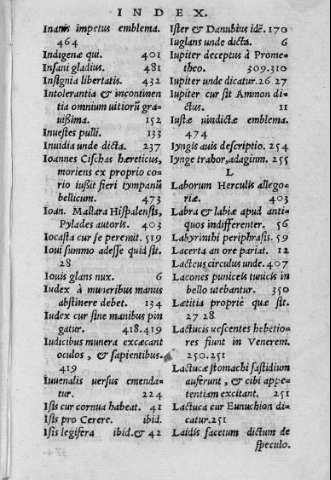 INDEX.
Inanis impetus emblema.
464
Indigenæ qui. 401
Insani gladius. 481
Insignia libertatis. 432
Intolerantia & incontinen
tia omnium uitiorũ gra-
uißima. 152
Inuestes pulli. 133
Inuidia unde dicta. 237
Ioannes Cischas hæreticus,
moriens ex proprio co-
rio iußit fieri tympanũ
bellicum. 473
Ioan. Mallara Hispalensis,
Pylades autoris. 403
Iocasta cur se peremit. 519
Ioui summo adesse quid sit.
28
Iouis glans nux. 6
Iudex à muneribus manus
abstinere debet. 134
Iudex cur sine manibus pin
gatur. 418.419
Iudicibus munera excæcant
oculos, & sapientibus.
419
Iuuenalis uersus emenda-
tur. 224
Isis cur cornua habeat. 41
Isis pro Cerere. ibid.
Isis legifera ibid. & 42
Ister & Danubius idẽ. 170
Iuglans unde dicta. 6
Iupiter deceptus à Prome-
theo. 309.310
Iupiter unde dicatur. 26 27
Iupiter cur sit Ammon di-
ctus. 11
Iustæ uindictæ emblema.
474
Iyngis auis descriptio. 254
Iynge trahor, adagium. 255
L
Laborum Herculis allego-
riæ. 403
Labra & labiæ apud anti-
quos indifferenter. 56
Labyrinthi periphrasis. 59
Lacerta an ore pariat. 12
Lacteus circulus unde. 407
Lacones puniceis tunicis in
bello utebantur. 350
Lætitia propriè quæ sit.
27 28
Lactucis uescentes hebetio-
res fiunt in Venerem.
250.251
Lactucæ stomachi fastidium
auferunt, & cibi appe-
tentiam excitant. 251
Lactuca cur Eunuchion di-
catur. 251
Laidis facetum dictum de
speculo.